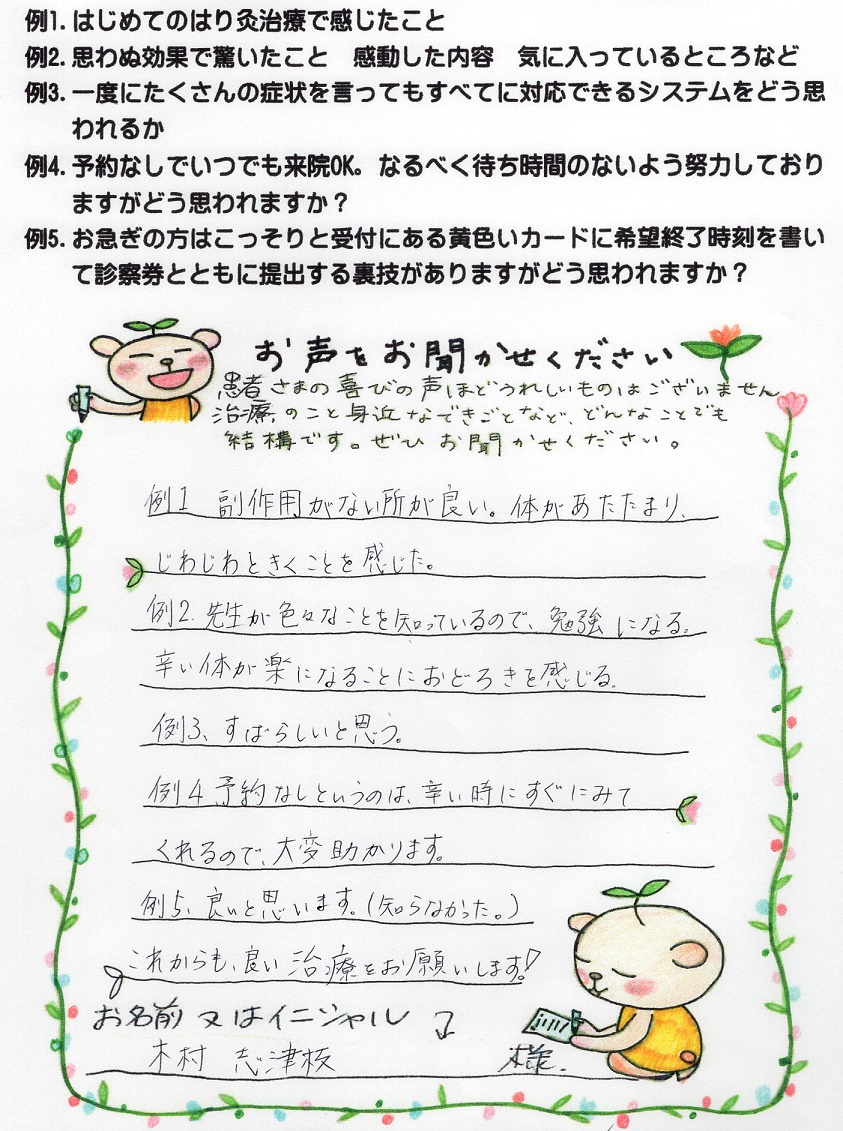 例1. はじめてのはり灸治療で感じたこと
例2. 思わぬ効果で驚いたこと　感動した内容　気に入っているところなど
例3. 一度にたくさんの症状を言ってもすべてに対応できるシステムをどう思
われるか
例4. 予約なしでいつでも来院OK。なるべく待ち時間のないよう努力しており
ますがどう思われますか？
例5. お急ぎの方はこっそりと受付にある黄色いカードに希望終了時刻を書い
て診察券とともに提出する裏技がありますがどう思われますか？
お声をお聞かせください
患者さまの喜びの声ほどうれしいものはございません
治療のこと身近なできごとなど、どんなことでも
結構です。ぜひお聞かせください。
例1 副作用がない所が良い。体があたたまり、
じわじわときくことを感じた。
例2. 先生が色々なことを知っているので、勉強になる。
辛い体が楽になることにおどろきを感じる。
例3、すばらしいと思う。
例4 予約なしというのは、辛い時にすぐにみて
くれるので、大変助かります。
例5、良いと思います。(知らなかった。)
これからも、良い治療をお願いします!
お名前又はイニシャル
木村 志津枝 様.